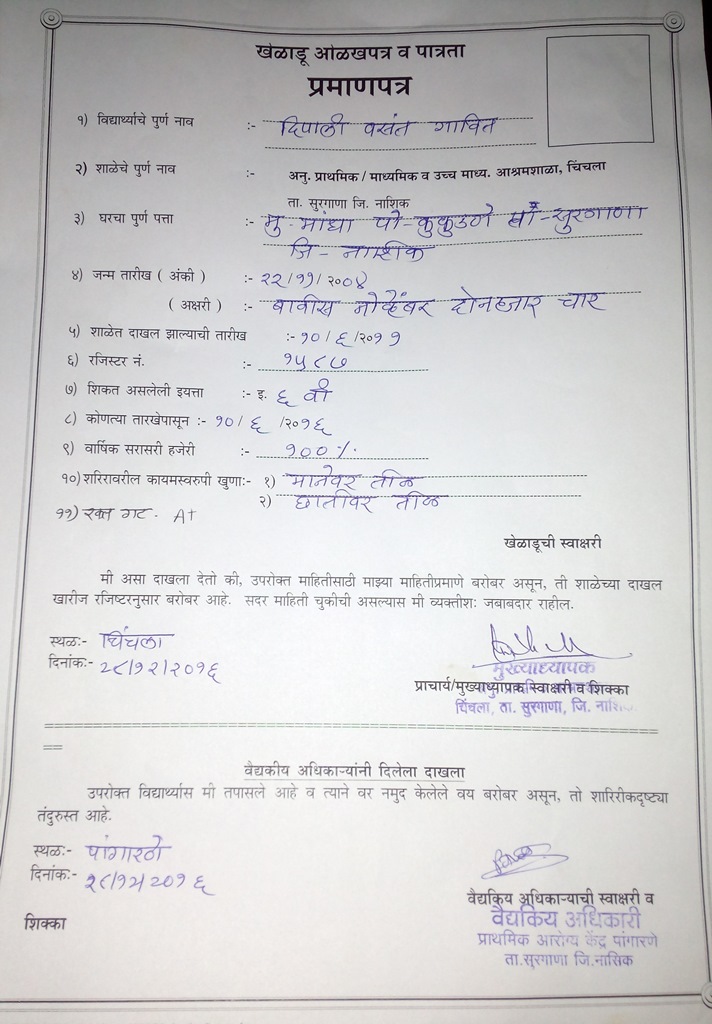 खेळाडू ओळखपत्र व पात्रता
प्रमाणपत्र
१) विद्यार्थ्याचे पुर्ण नाव :- दिपाली वसंत गावित
२) शाळेचे पुर्ण नाव :- अनु. प्राथमिक / माध्यमिक व उच्च माध्य. आश्रमशाळा, चिंचला
ता. सुरगाणा जि. नाशिक
३) घरचा पुर्ण पत्ता :- मु-मांधा पो-कुकुडणे ता-सुरगाणा
जि- नाशीक
४) जन्म तारीख ( अंकी ) :- २२/११/२००४
( अक्षरी ) :- बावीस नोव्हेंबर दोनहजार चार
५) शाळेत दाखल झाल्याची तारीख :- १०/६/२०११
६) रजिस्टर नं. :- १५८७
७) शिकत असलेली इयत्ता :- इ. ६ वी
८) कोणत्या तारखेपासून :- १०/ ६ /२०१६
९) वार्षिक सरासरी हजेरी :- १००%
१०) शरिरावरील कायमस्वरुपी खुणा:- १) मानेवर तीळ
२) छातीवर तीळ
११) रक्त गट - A+
खेळाडूची स्वाक्षरी
मी असा दाखला देतो की, उपरोक्त माहितीसाठी माझ्या माहितीप्रमाणे बरोबर असून, ती शाळेच्या दाखल
खारीज रजिष्टरनुसार बरोबर आहे. सदर माहिती चुकीची असल्यास मी व्यक्तीशः जबाबदार राहील.
स्थळ:- चिंचला
दिनांक:- २८/१२/२०१६
मुख्याध्यापक
प्राचार्य/मुख्याध्यापक स्वाक्षरी व शिक्का
चिंचला, ता. सुरगाणा, जि.
वैद्यकीय अधिकाऱ्यांनी दिलेला दाखला
उपरोक्त विद्यार्थ्यास मी तपासले आहे व त्याने वर नमुद केलेले वय बरोबर असून, तो शारिरीकदृष्ट्या
तंदुरुस्त आहे.
स्थळ:- पांगारणे
दिनांक:- २८/१२/२०१६
वैद्यकिय अधिकाऱ्याची स्वाक्षरी व
शिक्का
वैद्यकिय अधिकारी
प्राथमिक आरोग्य केंद्र पांगारणे
ता.सुरगाणा जि.नासिक